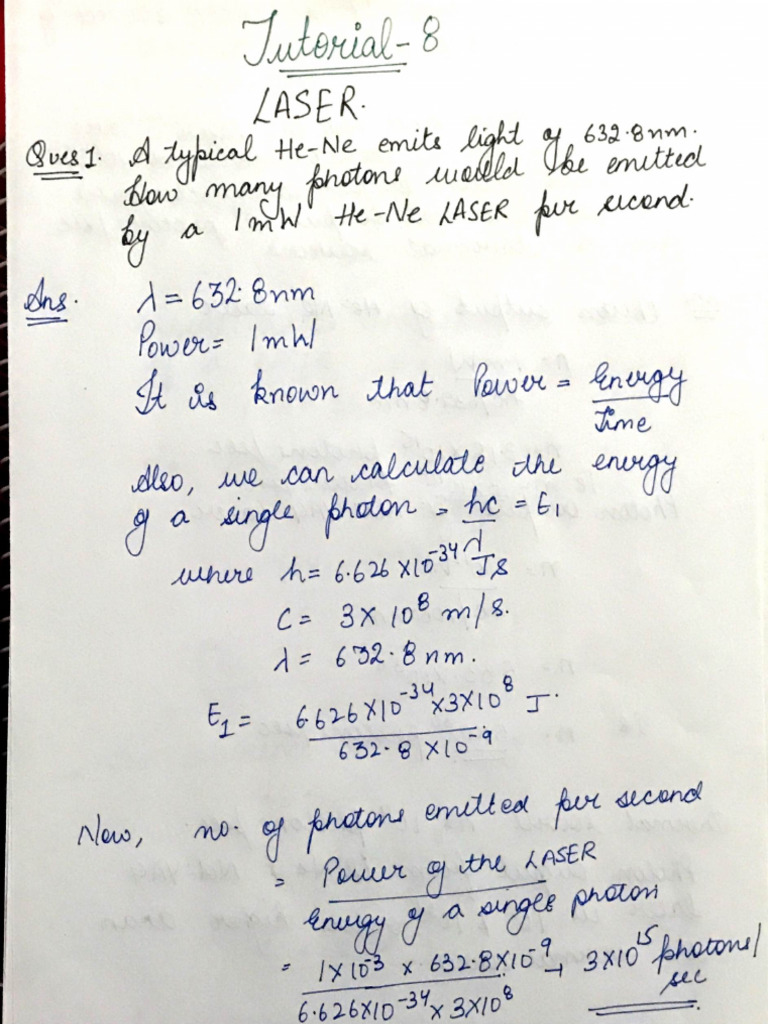 Tutorial - 8
LASER.
Ques 1. A typical He-Ne emits light of 632.8nm.
How many photons would be emitted
by a 1mW He-Ne LASER per second.
Ans. λ = 632.8nm
Power = 1mW
It is known that Power = Energy
Time
Also, we can calculate the energy
of a single photon = hc/λ = E₁
where h = 6.626 × 10⁻³⁴ Js
C = 3 × 10⁸ m/s.
λ = 632.8 nm.
E₁ = 6.626 × 10⁻³⁴ × 3 × 10⁸ J.
632.8 × 10⁻⁹
Now, no. of photons emitted per second
= Power of the LASER
Energy of a single photon
= 1 × 10⁻³ × 632.8 × 10⁻⁹ → 3 × 10¹⁵ photons/
sec
6.626 × 10⁻³⁴ × 3 × 10⁸